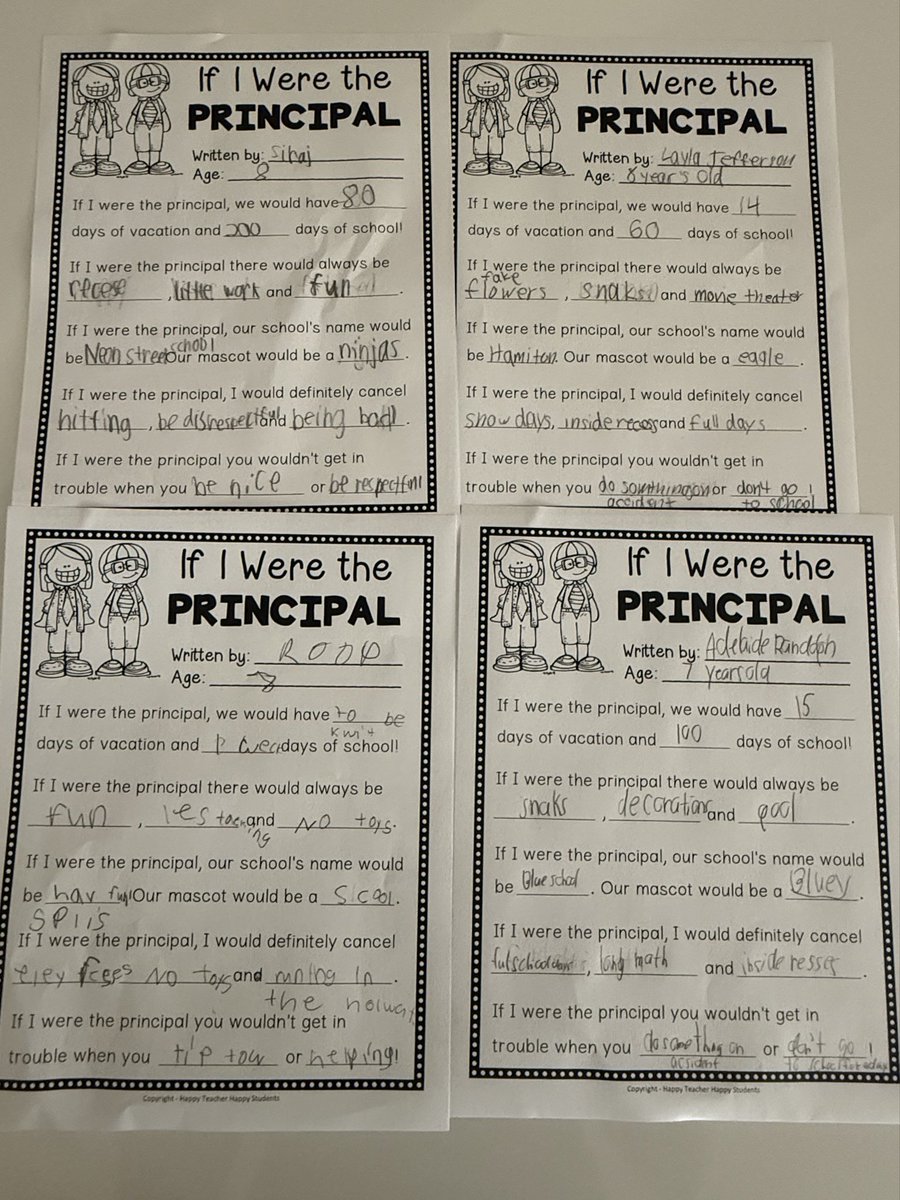 If I Were the
PRINCIPAL
Written by: Siraj
Age: 8
If I were the principal, we would have 80
days of vacation and 200 days of school!
If I were the principal there would always be
recese, little work and fun.
If I were the principal, our school's name would
school
be Neon street Our mascot would be a ninjas.
If I were the principal, I would definitely cancel
hitting, be disrespectful and being bad.
If I were the principal you wouldn't get in
trouble when you be nice or be respectful!
If I Were the
PRINCIPAL
Written by: Layla Jefferson
Age: 8 year's old
If I were the principal, we would have 14
days of vacation and 60 days of school!
If I were the principal there would always be
fake
flowers, snaks and movie theator
If I were the principal, our school's name would
be Hamilton. Our mascot would be a eagle.
If I were the principal, I would definitely cancel
snow days, inside recess and full days.
If I were the principal you wouldn't get in
trouble when you do somthing on or don't go!
accident to school
If I Were the
PRINCIPAL
Written by:
Age: 8
If I were the principal, we would have to be
days of vacation and days of school!
If I were the principal there would always be
fun, les and No toys.
If I were the principal, our school's name would
be hav ful Our mascot would be a Scool.
If I were the principal, I would definitely cancel
No toys and runing in
the
If I were the principal you wouldn't get in
trouble when you tip tow or helping!
Copyright - Happy Teacher Happy Students
If I Were the
PRINCIPAL
Written by: Adelaide Randolph
Age: 7 years old
If I were the principal, we would have 15
days of vacation and 100 days of school!
If I were the principal there would always be
snaks, decorations and pool.
If I were the principal, our school's name would
be Blue school. Our mascot would be a Bluey.
If I were the principal, I would definitely cancel
long math and inside resses.
If I were the principal you wouldn't get in
trouble when you do something on or don't go!
accident to school for a day
Copyright - Happy Teacher Happy Students